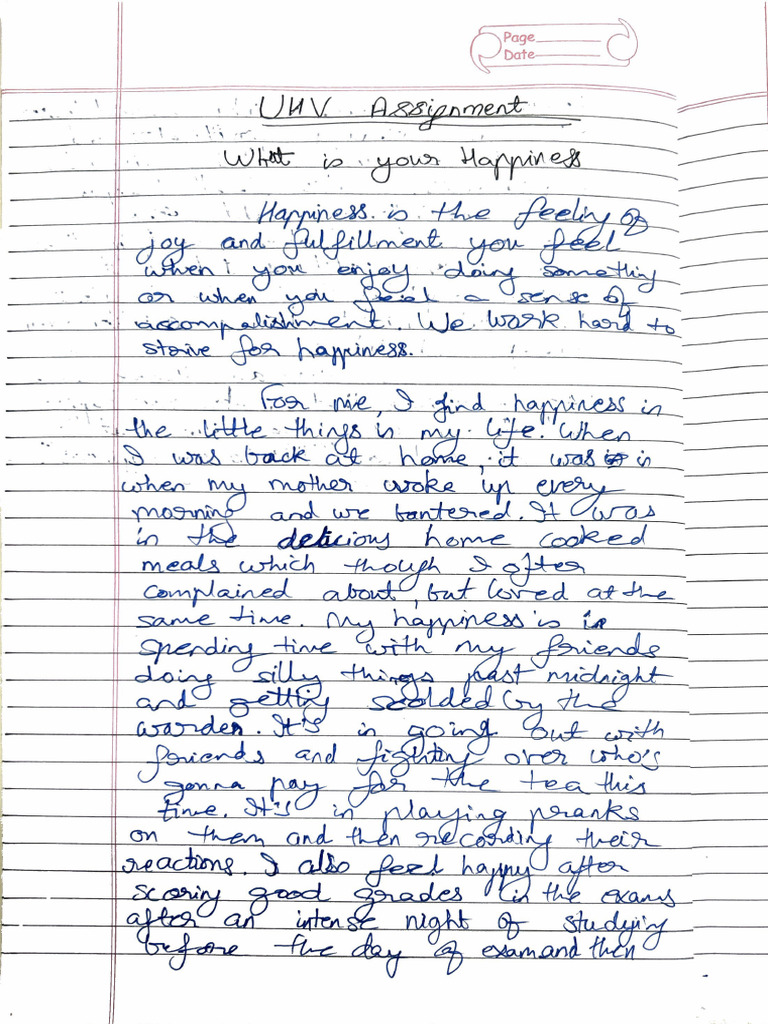 Page
Date
UHV Assignment
What is your Happiness
Happiness is the feeling of
joy and fulfillment you feel
when you enjoy doing something
or when you feel a sense of
accompalishment. We work hard to
strive for happiness.
For me, I find happiness in
the little things in my life. When
I was back at home, it was in
when my mother woke up every
morning and we bantered. It was
in the delicious home cooked
meals which though I often
complained about, but loved at the
same time. My happiness is in
spending time with my friends
doing silly things past midnight
and getting scolded by the
warden. It's in going out with
friends and fighting over who's
gonna pay for the tea this
time. It's in playing pranks
on them and then recording their
reactions. I also feel happy after
scoring good grades in the exams
after an intense night of studying
before the day of exam and then